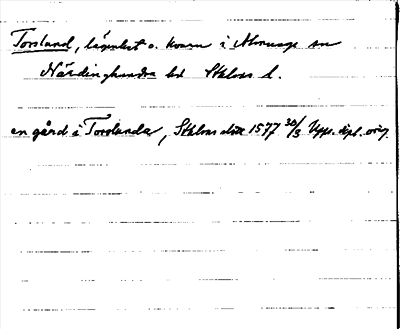 Torsland, lägenhet o. kvarn i Almunge sn
Närdinghundra hd Sthlms l.
en gård i Torslanda, Sthlms slott 1577 30/3 Upps. dipl. orig.